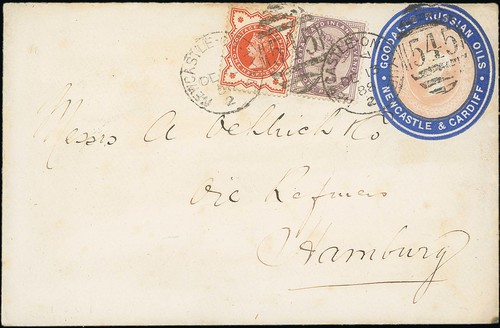 GOODALLS RUSSIAN OILS
NEWCASTLE & CARDIFF
545
NEWCASTLE-ON
DE
88
2
Messrs A Oehlrich & Co
Oil Refiners
Hamburg